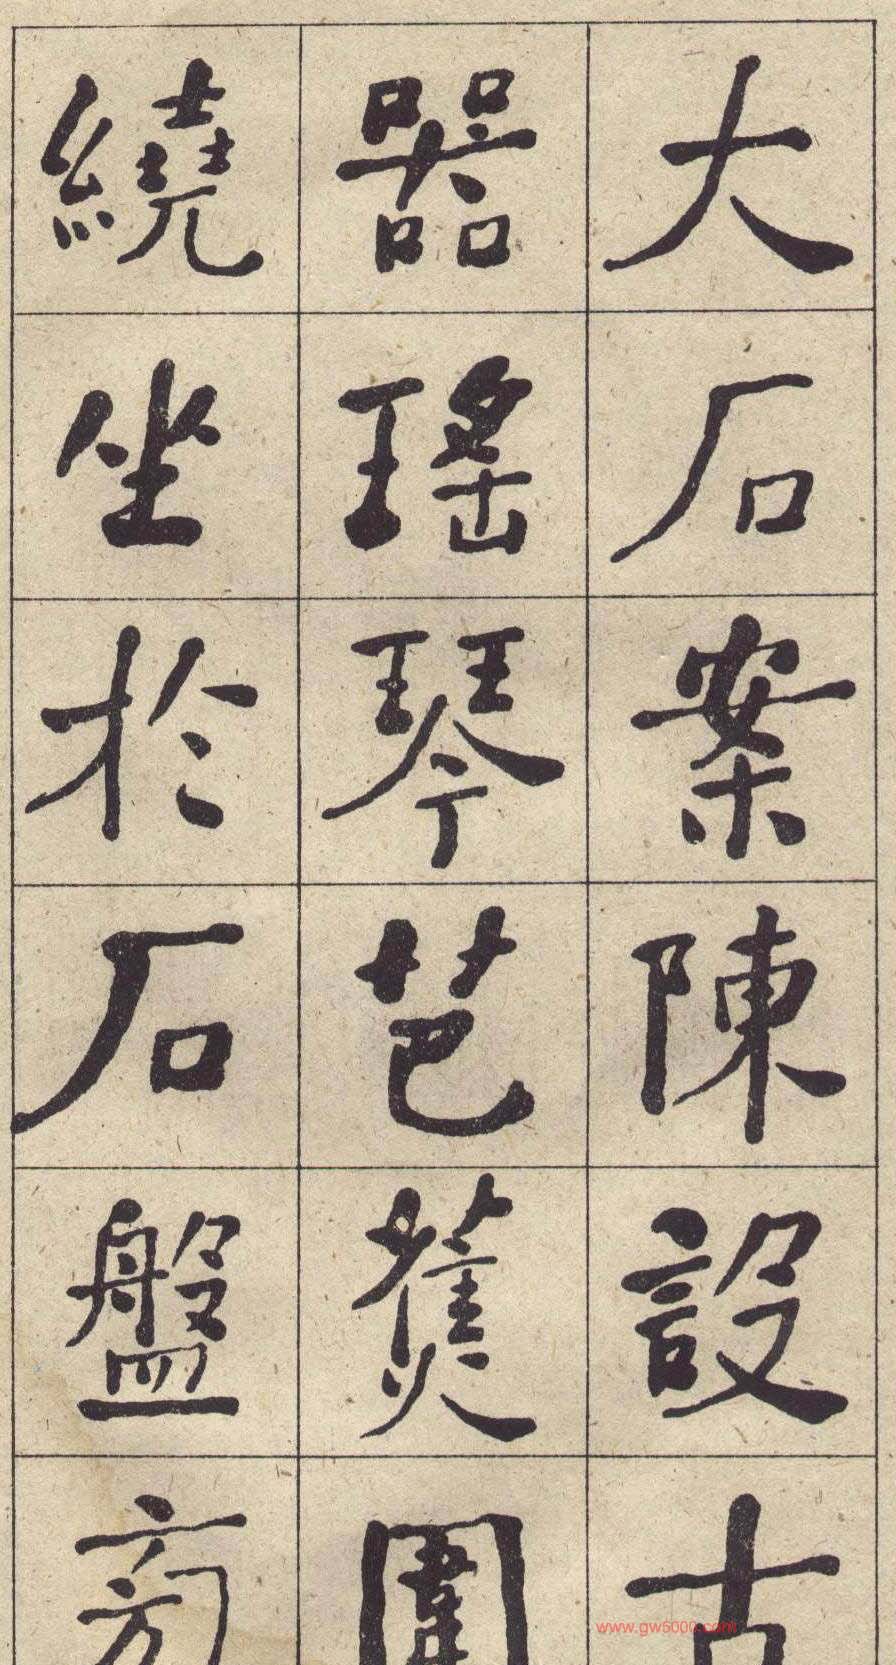 大石案陳設古
器瑤琴芭蕉圍
繞坐於石盤旁
www.gw5000.com